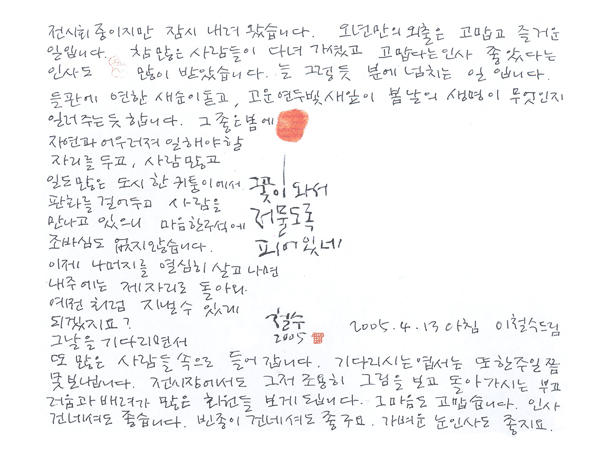 전시회 중이지만 잠시 내려 왔습니다. 오년만의 외출은 고맙고 즐거운
일입니다. 참 많은 사람들이 다녀 가셨고 고맙다는 인사 좋았다는
인사도 많이 받았습니다. 늘 그렇듯 분에 넘치는 일 입니다.
들판에 연한 새순이 돋고, 고운 연두빛 새잎이 봄날의 생명이 무엇인지
일러주는 듯 합니다. 그 좋은 봄에
자연과 어우러져 일해야 할
자리를 두고, 사람 많고
일도 많은 도시 한 귀퉁이에서
판화를 걸어두고 사람을
만나고 있으니 마음 한구석에
조바심도 없지 않습니다.
이제 나머지를 열심히 살고 나면
내주에는 제자리로 돌아와
여전처럼 지낼 수 있게
되겠지요?
그날을 기다리면서
또 많은 사람들 속으로 들어 갑니다. 기다리시는 엽서는 또 한 주일 쯤
못 보냅니다. 전시장에서도 그저 조용히 그림을 보고 돌아 가시는 부끄
러움과 배려가 많은 회원들 보게 됩니다. 그 마음도 고맙습니다. 인사
건네셔도 좋습니다. 빈 종이 건네셔도 좋구요. 가벼운 눈인사도 좋지요.
꽃이 와서
저물도록
피어 있네
철수
2005
2005.4.13 아침 이철수 드림